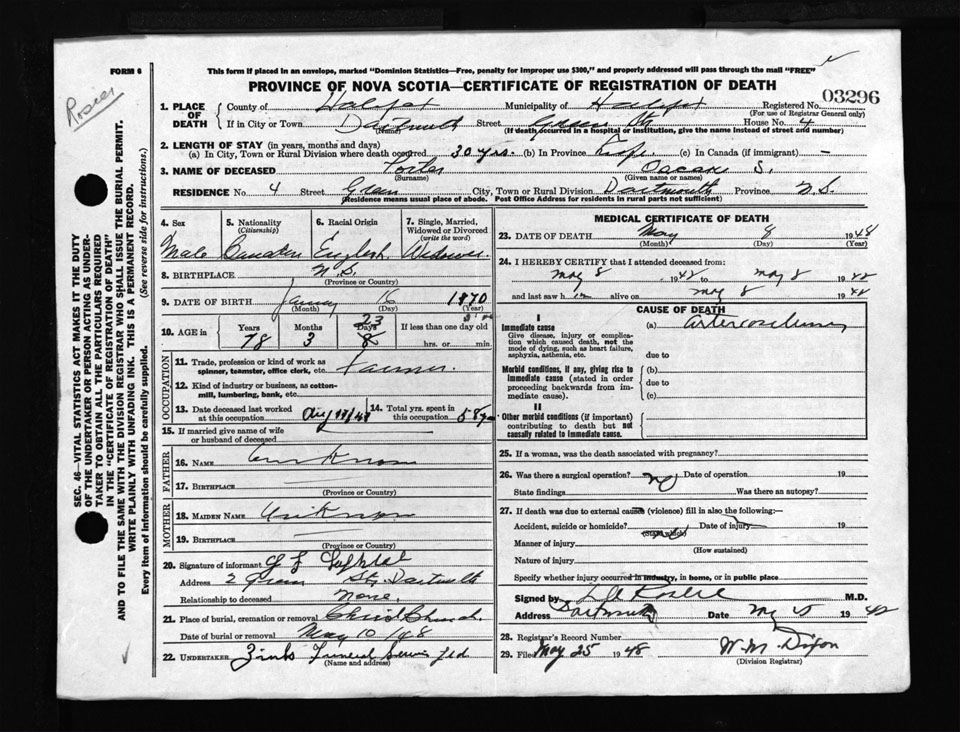 FORM 6
This form if placed in an envelope, marked "Dominion Statistics—Free, penalty for improper use $300," and properly addressed will pass through the mail "FREE"
PROVINCE OF NOVA SCOTIA—CERTIFICATE OF REGISTRATION OF DEATH
Rosier
03296
1. PLACE OF DEATH County of Halifax Municipality of Halifax Registered No.
(For use of Registrar General only)
If in City or Town Dartmouth Street Green St House No. 4
(Name) (If death occurred in a hospital or institution, give the name instead of street and number)
2. LENGTH OF STAY (in years, months and days)
(a) In City, Town or Rural Division where death occurred 30 yrs. (b) In Province Life (c) In Canada (if immigrant) —
3. NAME OF DECEASED S.
(Surname) (Given name or names)
RESIDENCE No. 4 Street Green City, Town or Rural Division Dartmouth Province N.S.
(Residence means usual place of abode. Post Office Address for residents in rural parts not sufficient)
SEC. 46—VITAL STATISTICS ACT MAKES IT THE DUTY
OF THE UNDERTAKER OR PERSON ACTING AS UNDER-
TAKER TO OBTAIN ALL THE PARTICULARS REQUIRED
IN THE "CERTIFICATE OF REGISTRATION OF DEATH"
AND TO FILE THE SAME WITH THE DIVISION REGISTRAR WHO SHALL ISSUE THE BURIAL PERMIT.
WRITE PLAINLY WITH UNFADING INK. THIS IS A PERMANENT RECORD.
Every item of information should be carefully supplied. (See reverse side for instructions.)
4. Sex 5. Nationality 6. Racial Origin 7. Single, Married,
(Citizenship) Widowed or Divorced
(write the word)
Male Canadian English Widower
8. BIRTHPLACE N.S.
(Province or Country)
9. DATE OF BIRTH January 16 1870
(Month) (Day) (Year)
10. AGE in Years Months Days If less than one day old
78 3 23 hrs. or min.
OCCUPATION
11. Trade, profession or kind of work as
spinner, teamster, office clerk, etc. Farmer.
12. Kind of industry or business, as cotton-
mill, lumbering, bank, etc.
13. Date deceased last worked
at this occupation
14. Total yrs. spent in
this occupation 58 yrs
15. If married give name of wife
or husband of deceased
FATHER
16. NAME Unknown
17. BIRTHPLACE
(Province or Country)
MOTHER
18. MAIDEN NAME Unknown
19. BIRTHPLACE
(Province or Country)
20. Signature of informant
Address 2 Green St, Dartmouth
Relationship to deceased None.
21. Place of burial, cremation or removal Christ Church.
Date of burial or removal May 10/48
22. UNDERTAKER Zinks Funeral Service Ltd
(Name and address)
MEDICAL CERTIFICATE OF DEATH
23. DATE OF DEATH May 8 1948
(Month) (Day) (Year)
24. I HEREBY CERTIFY that I attended deceased from:
May 8 1948 to May 8 1948
and last saw him alive on May 8 1948
CAUSE OF DEATH
I
Immediate cause
Give disease, injury or complica-
tion which caused death, not the
mode of dying, such as heart failure,
asphyxia, asthenia, etc.
(a) arteriosclerosis
due to
Morbid conditions, if any, giving rise to
immediate cause (stated in order
proceeding backwards from im-
mediate cause).
(b)
due to
(c)
II
Other morbid conditions (if important)
contributing to death but not
causally related to immediate cause.
25. If a woman, was the death associated with pregnancy?
26. Was there a surgical operation? no Date of operation 19
State findings Was there an autopsy?
27. If death was due to external causes (violence) fill in also the following:—
Accident, suicide or homicide? Date of injury 19
(State which)
Manner of injury
(How sustained)
Nature of injury
Specify whether injury occurred in industry, in home, or in public place
Signed by M.D.
Address Dartmouth Date 1948
28. Registrar's Record Number
29. Filed May 25 1948 W. M. Dixon
(Division Registrar)